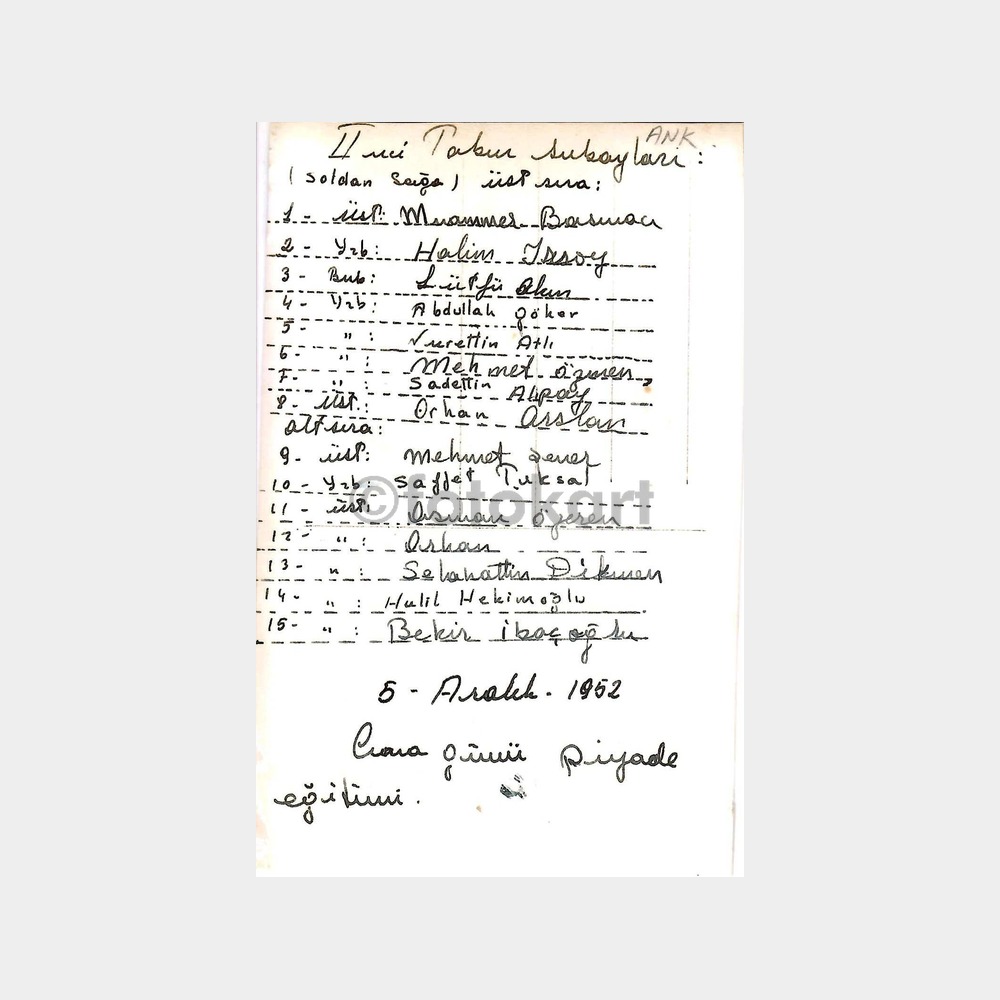 ANK
II nci Tabur subayları :
(Soldan Sağa) üst sıra :
1 - üst : Muammer Basmacı
2 - Yzb : Halim
3 - Bnb : Lütfü Akın
4 - Yzb : Abdullah Göker
5 - " : Nurettin Atlı
6 - " : Mehmet özmen,
7 - " : Sadettin Alpay
8 - üst. : Orhan Arslan
alt sıra :
9 - üst : Mehmet Şener
10 - Yzb : Saffet Tuksal
11 - üst : Osman özeren
12 - " : Orhan
13 - " : Selahattin Dikmen
14 - " : Halil Hekimoğlu
15 - " : Bekir
©fotokart
5 - Aralık - 1952
Cuma günü piyade
eğitimi.